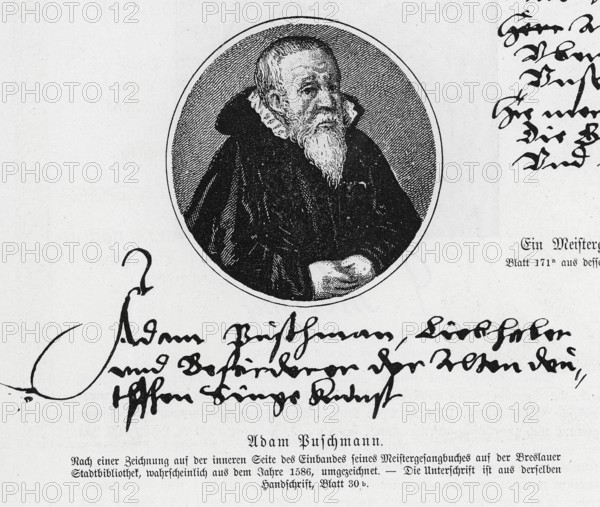 Herr
Eben
Unse
hie mer
Die
Vnd
Ein Meisterg
Blatt 171ᵃ aus desse
Adam Püschman, Liebhaber
und Beförderer der Alten deü-
tschen Singe Kunst
Adam Puschmann.
Nach einer Zeichnung auf der inneren Seite des Einbandes seines Meistergesangbuches auf der Breslauer
Stadtbibliothek, wahrscheinlich aus dem Jahre 1586, umgezeichnet. — Die Unterschrift ist aus derselben
Handschrift, Blatt 30ᵇ.
PHOTO12